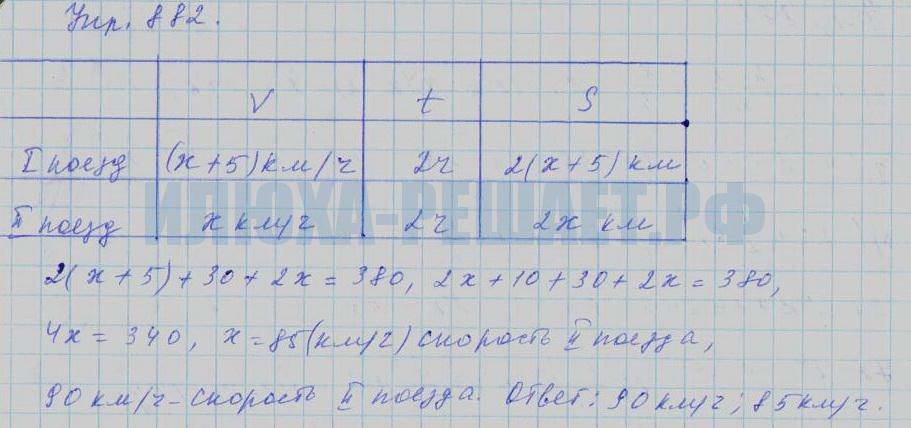 Упр. 882.
V t S
I поезд (x+5)км/ч 2ч 2(x+5) км
ИЛЮХА-РЕШАЕТ.РФ
II поезд x км/ч 2ч 2x км
2(x+5)+30+2x=380, 2x+10+30+2x=380,
4x=340, x=85(км/ч) скорость II поезда,
90 км/ч-скорость II поезда. Ответ: 90км/ч; 85км/ч.